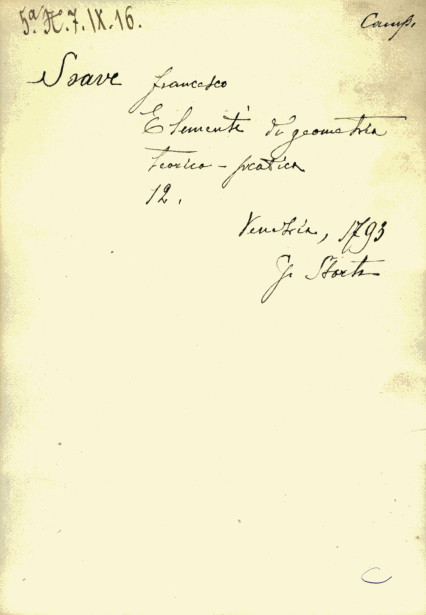 5.ª H. 7. IX. 16.
Camp.
Soave Francesco
Elementi di geometria
teorico - pratica
12.
Venezia, 1793
G. Storti
C